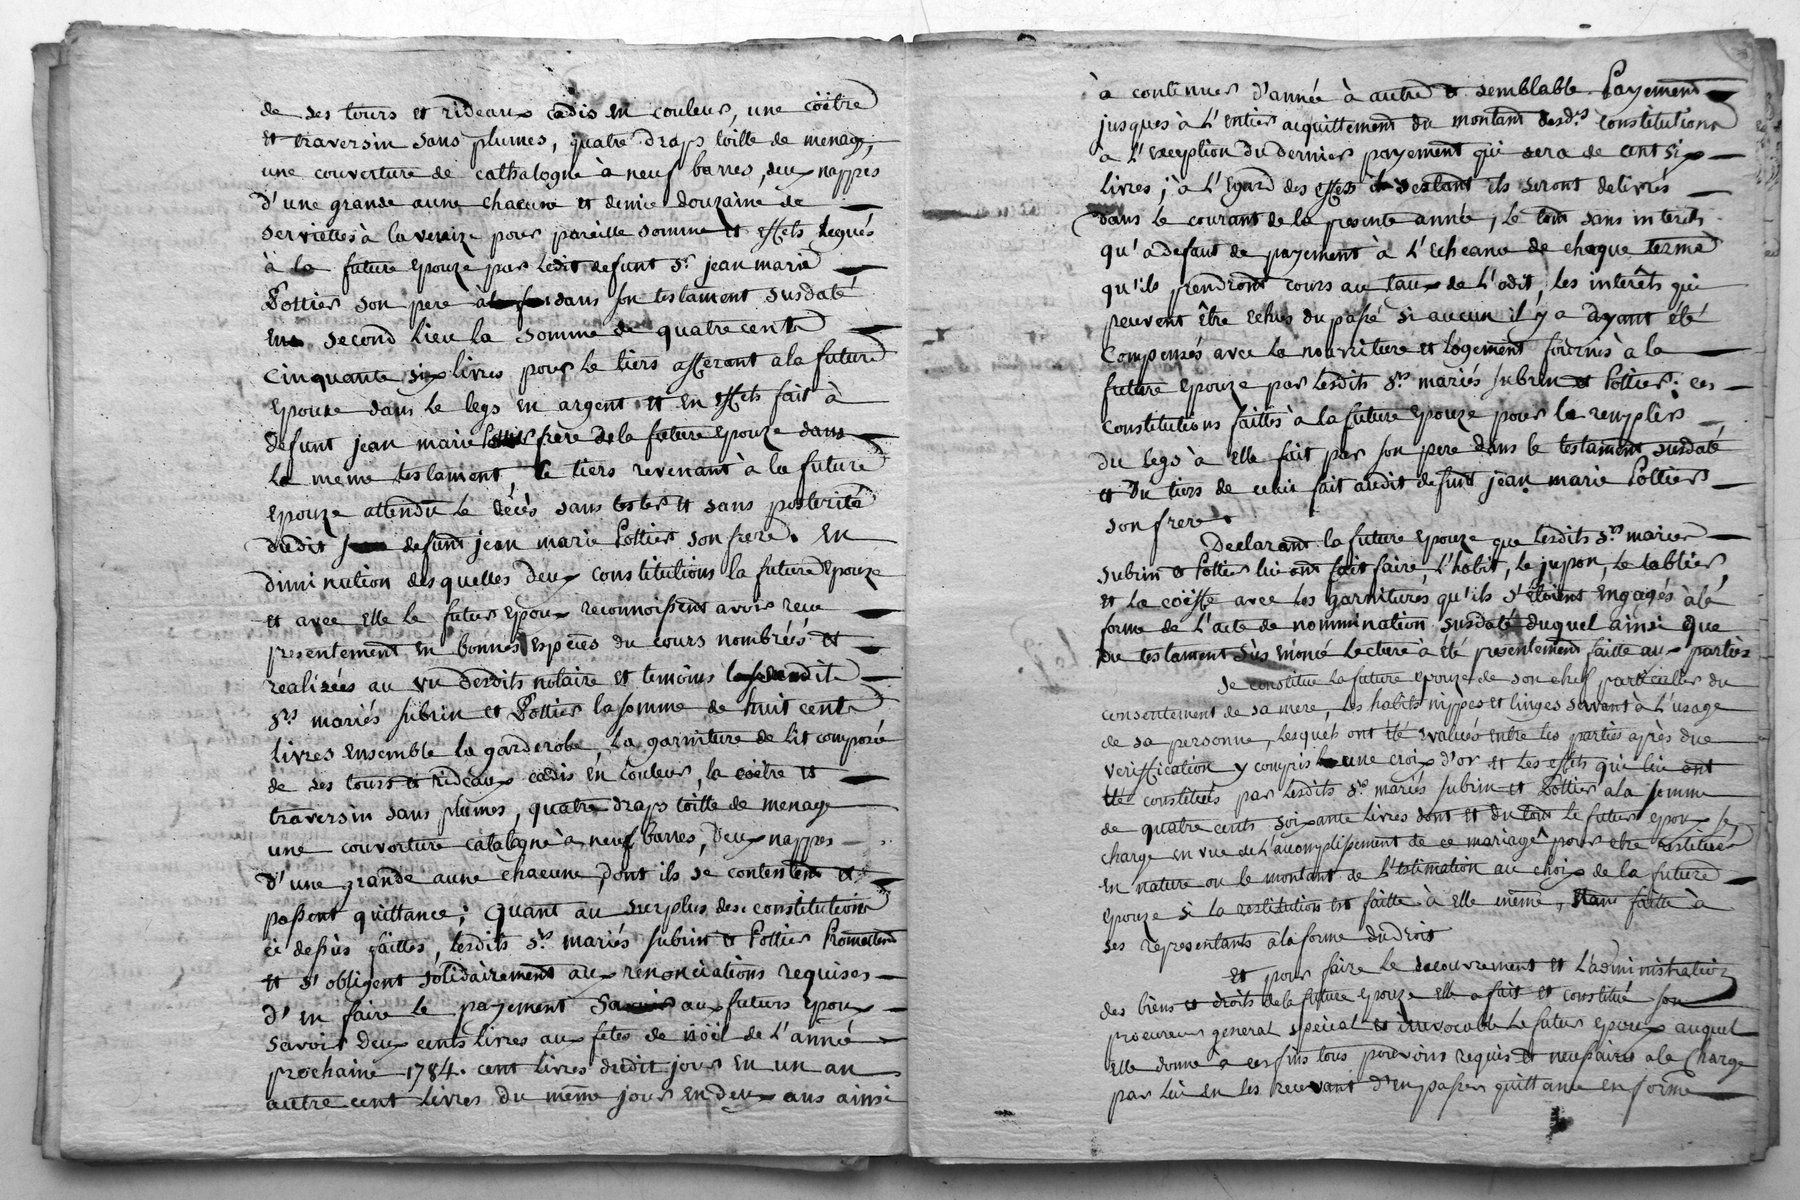 de ses tours et rideaux cadis en couleur, une coitre
et traversin sans plumes, quatre draps toille de menage,
une couverture de cathalogne à neuf barres, deux nappes
d'une grande aune chacune et demie douzaine de
serviettes à la veneize pour pareille somme et effets legués
à la future epouze par ledit defunt Sr. jean marie
Pottier son pere dans son testament susdaté
en second lieu la somme de quatre cents
cinquante six livres pour le tiers afferant a la future
epouze dans le legs en argent et en effets fait à
defunt jean marie Pottier frere de la future epouze dans
le meme testament, le tiers revenant à la future
epouze attendu le décès sans tester et sans posterité
dudit defunt jean marie Pottier son frere. En
diminution des quelles deux constitutions la future epouze
et avec elle le futur epoux reconnoissent avoir recu
presentement en bonnes espèces du cours nombréés et
realizées au vu desdits notaire et temoins desdits
Srs mariés Subrin et Pottier la somme de huit cents
livres ensemble la garderobe, la garniture de lit composée
de ses tours et rideaux cadis en couleur, la coitre et
traversin sans plumes, quatre draps toille de menage
une couvorture catalogne à neuf barres, Deux nappes
d'une grande aune chacune, dont ils se contentent et
passent quittance; Quant au surplus des constitutions
ci dessus faittes, lesdits Srs mariés Subrin et Pottier Promettent
et s'obligent solidairement aux renonciations requises
d'en faire le payement aux futurs epoux
savoir deux cents livres aux fetes de noël de l'année
prochaine 1784. cent livres dudit jour en un an
autre cent livres du même jour en deux ans ainsi
à continuer d'année à autre et semblable Payement
jusques à l'entier acquittement du montant desds. constitutions
a l'exception du dernier payement qui sera de cent six
livres; à l'egard des effets restant ils seront delivrés
dans le courant de la presente année, le tout sans interets
qu'a defaut de payement à l'echeance de chaque terme
qu'ils prendront cours au taux de l'edit, les intérêts qui
peuvent être echus du passé si aucun il y a ayant été
compensés avec la nourriture et logement fournis à la
future epouze par lesdits Srs mariés Subrin et Pottier. ces
constitutions faittes à la future epouze pour la remplir
du legs à elle fait par son pere dans le testament susdaté
et du tiers de celui fait audit defunt jean marie Pottier
son frere.
Declarant la future epouze que lesdits Srs mariés
Subrin et Pottier lui ont fait faire, l'habit, le jupon, le tablier,
et la coëffe avec les garnitures qu'ils s'etoient engagés à la
forme de l'acte de nommination susdaté duquel ainsi que
du testament sus enoncé lecture à eté presentement faitte aux parties
Se constitue la future epouze de son chef particulier du
consentement de sa mere, les habits nippes et linges servant à l'usage
de sa personne, lesquels ont eté evalués entre les parties après due
veriffication y compris une croix d'or et les effets qui lui ont
eté constitués par lesdits Srs mariés Subrin et Pottier a la somme
de quatre cents soixante livres dont et du tout le futur epoux se
charge en vue de l'accomplissement de ce mariage pour etre restitués
en nature ou le montant de l'estimation au choix de la future
epouze si la restitution est faitte à elle même, etant faitte à
ses representants a la forme du droit
Et pour faire le recouvrement et l'administration
des biens et droits de la future epouze elle a fait et constitué son
procureur general special et irrevocable le futur epoux auquel
elle donne a ces fins tous pouvoirs requis et necessaires a la charge
par lui en les recevant d'en passer quittance en forme